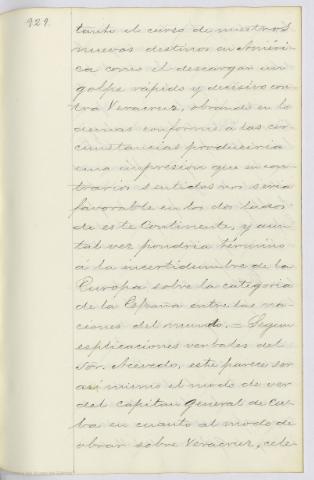 929.
tanto el curso de nuestros
nuevos destinos en Améri-
ca como el descargar un
golpe rápido y decisivo con-
tra Veracruz, obrando en lo
demas conforme á las cir-
cunstancias produciria
una impresion que en con-
trarios sentidos nos seria
favorable en los dos lados
de este Continente, y aun
tal vez pondria término
á la incertidumbre de la
Europa sobre la categoria
de la España entre las na-
ciones del mundo. = Segun
esplicaciones verbales del
Sor. Acevedo, este parece ser
asi mismo el modo de ver
del Capitan General de Cu-
ba en cuanto al modo de
obrar sobre Veracruz, cele-